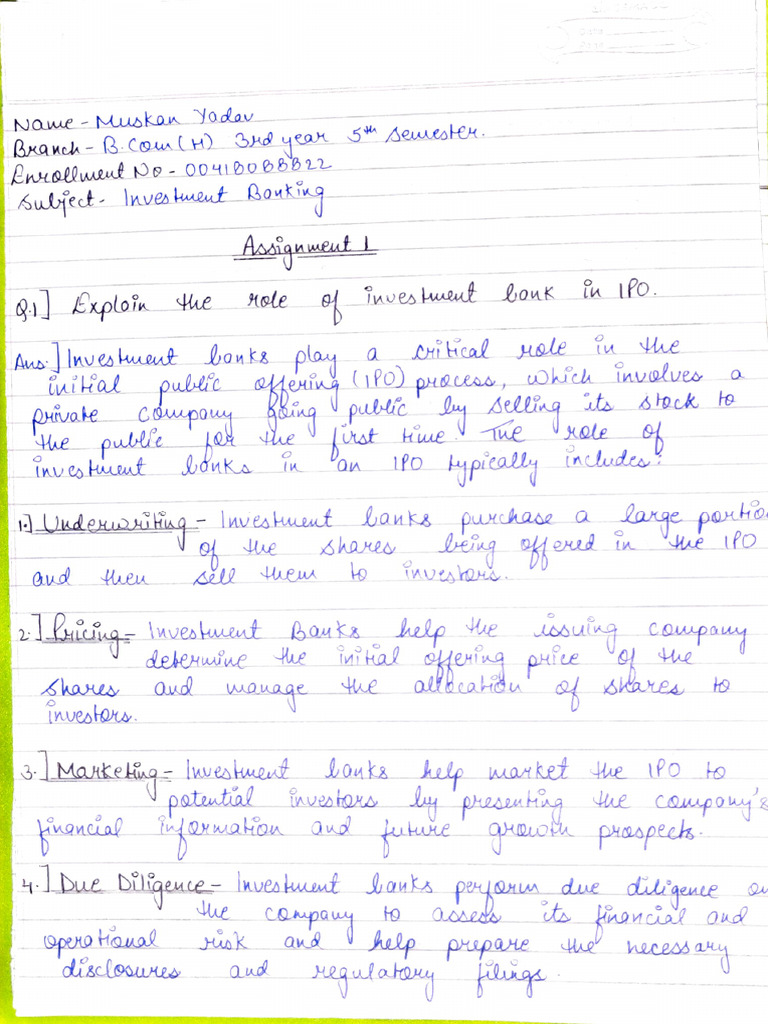 Name - Muskan Yadav
Branch - B.Com (H) 3rd year 5th semester.
Enrollment No - 00418088822
Subject - Investment Banking
Assignment 1
Q.1] Explain the role of investment bank in IPO.
Ans.] Investment banks play a critical role in the
initial public offering (IPO) process, which involves a
private company going public by selling its stock to
the public for the first time. The role of
investment banks in an IPO typically includes:
1.] Underwriting - Investment banks purchase a large portio
of the shares being offered in the IPO
and then sell them to investors.
2.] Pricing - Investment Banks help the issuing company
determine the initial offering price of the
shares and manage the allocation of shares to
investors.
3.] Marketing - Investment banks help market the IPO to
potential investors by presenting the company's
financial information and future growth prospects.
4.] Due Diligence - Investment banks perform due diligence on
the company to assess its financial and
operational risk and help prepare the necessary
disclosures and regulatory filings.